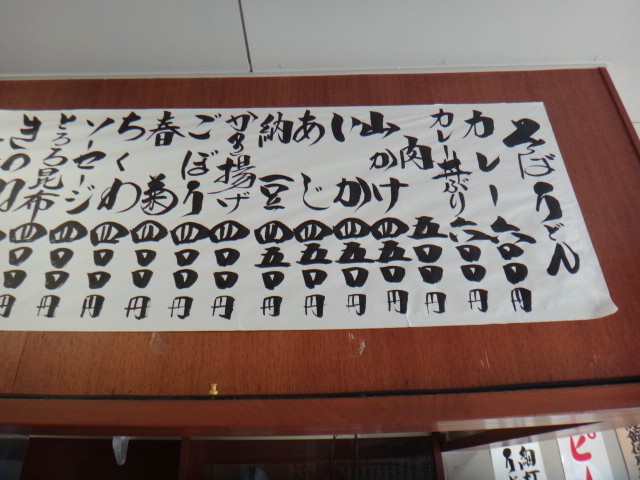 そばうどん
カレー 六〇〇円
カレー丼ぶり 六〇〇円
肉 五〇〇円
山かけ 四五〇円
いか 四五〇円
あじ 四五〇円
納豆 四五〇円
かき揚げ 四〇〇円
ごぼう 四〇〇円
春菊 四〇〇円
ちくわ 四〇〇円
ソーセージ 四〇〇円
とろろ昆布 四〇〇円
ピ
細打